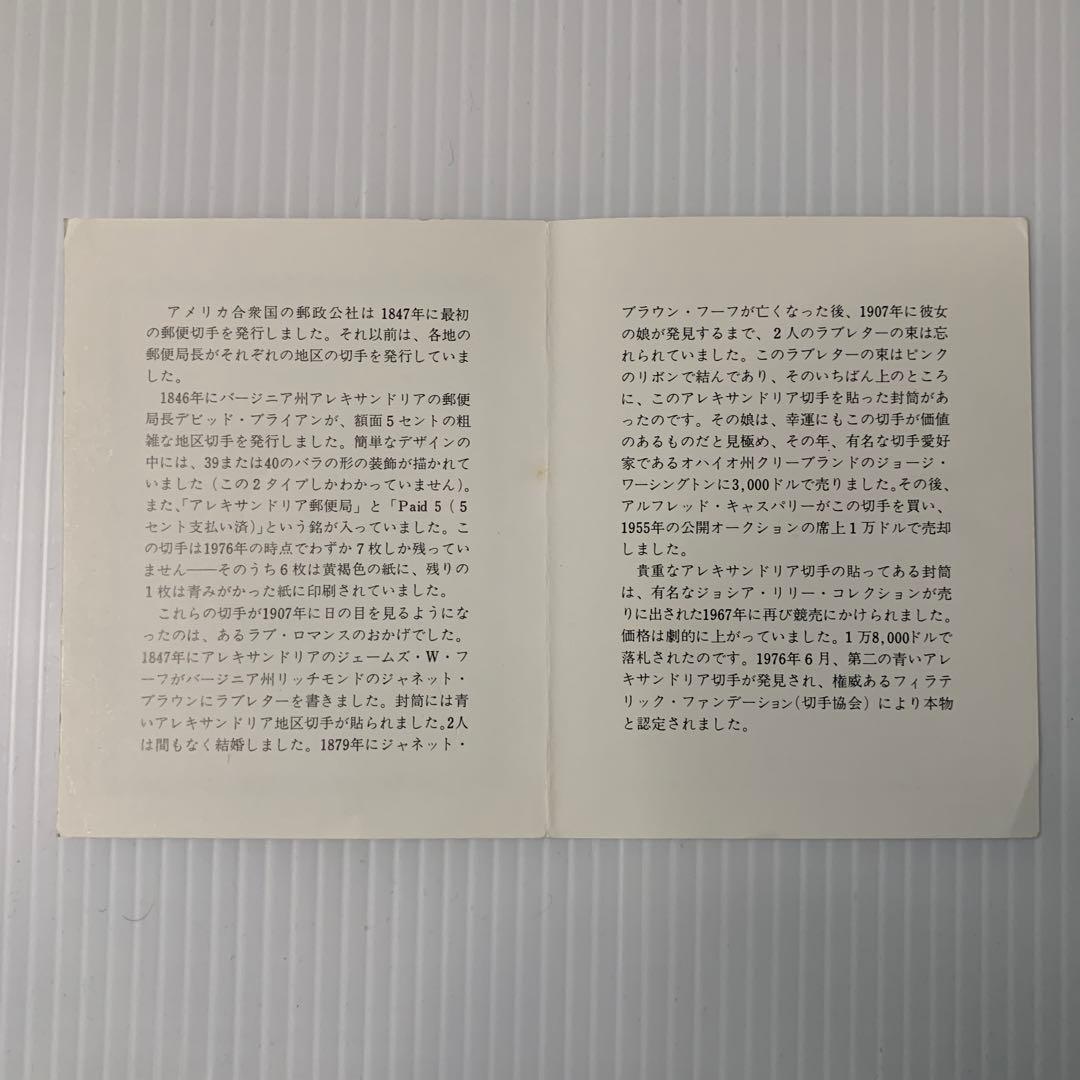 アメリカ合衆国の郵政公社は1847年に最初
の郵便切手を発行しました。それ以前は、各地の
郵便局長がそれぞれの地区の切手を発行していま
した。
1846年にバージニア州アレキサンドリアの郵便
局長デビッド・ブライアンが、額面5セントの粗
雑な地区切手を発行しました。簡単なデザインの
中には、39または40のバラの形の装飾が描かれて
いました（この2タイプしかわかっていません）。
また、「アレキサンドリア郵便局」と「Paid 5（5
セント支払い済）」という銘が入っていました。こ
の切手は1976年の時点でわずか7枚しか残ってい
ません――そのうち6枚は黄褐色の紙に、残りの
1枚は青みがかった紙に印刷されていました。
これらの切手が1907年に日の目を見るようにな
ったのは、あるラブ・ロマンスのおかげでした。
1847年にアレキサンドリアのジェームズ・W・フ
ーフがバージニア州リッチモンドのジャネット・
ブラウンにラブレターを書きました。封筒には青
いアレキサンドリア地区切手が貼られました。2人
は間もなく結婚しました。1879年にジャネット・
ブラウン・フーフが亡くなった後、1907年に彼女
の娘が発見するまで、2人のラブレターの束は忘
れられていました。このラブレターの束はピンク
のリボンで結んであり、そのいちばん上のところ
に、このアレキサンドリア切手を貼った封筒があ
ったのです。その娘は、幸運にもこの切手が価値
のあるものだと見極め、その年、有名な切手愛好
家であるオハイオ州クリーブランドのジョージ・
ワーシングトンに3,000ドルで売りました。その後、
アルフレッド・キャスパリーがこの切手を買い、
1955年の公開オークションの席上1万ドルで売却
しました。
貴重なアレキサンドリア切手の貼ってある封筒
は、有名なジョシア・リリー・コレクションが売
りに出された1967年に再び競売にかけられました。
価格は劇的に上がっていました。1万8,000ドルで
落札されたのです。1976年6月、第二の青いアレ
キサンドリア切手が発見され、権威あるフィラテ
リック・ファンデーション（切手協会）により本物
と認定されました。